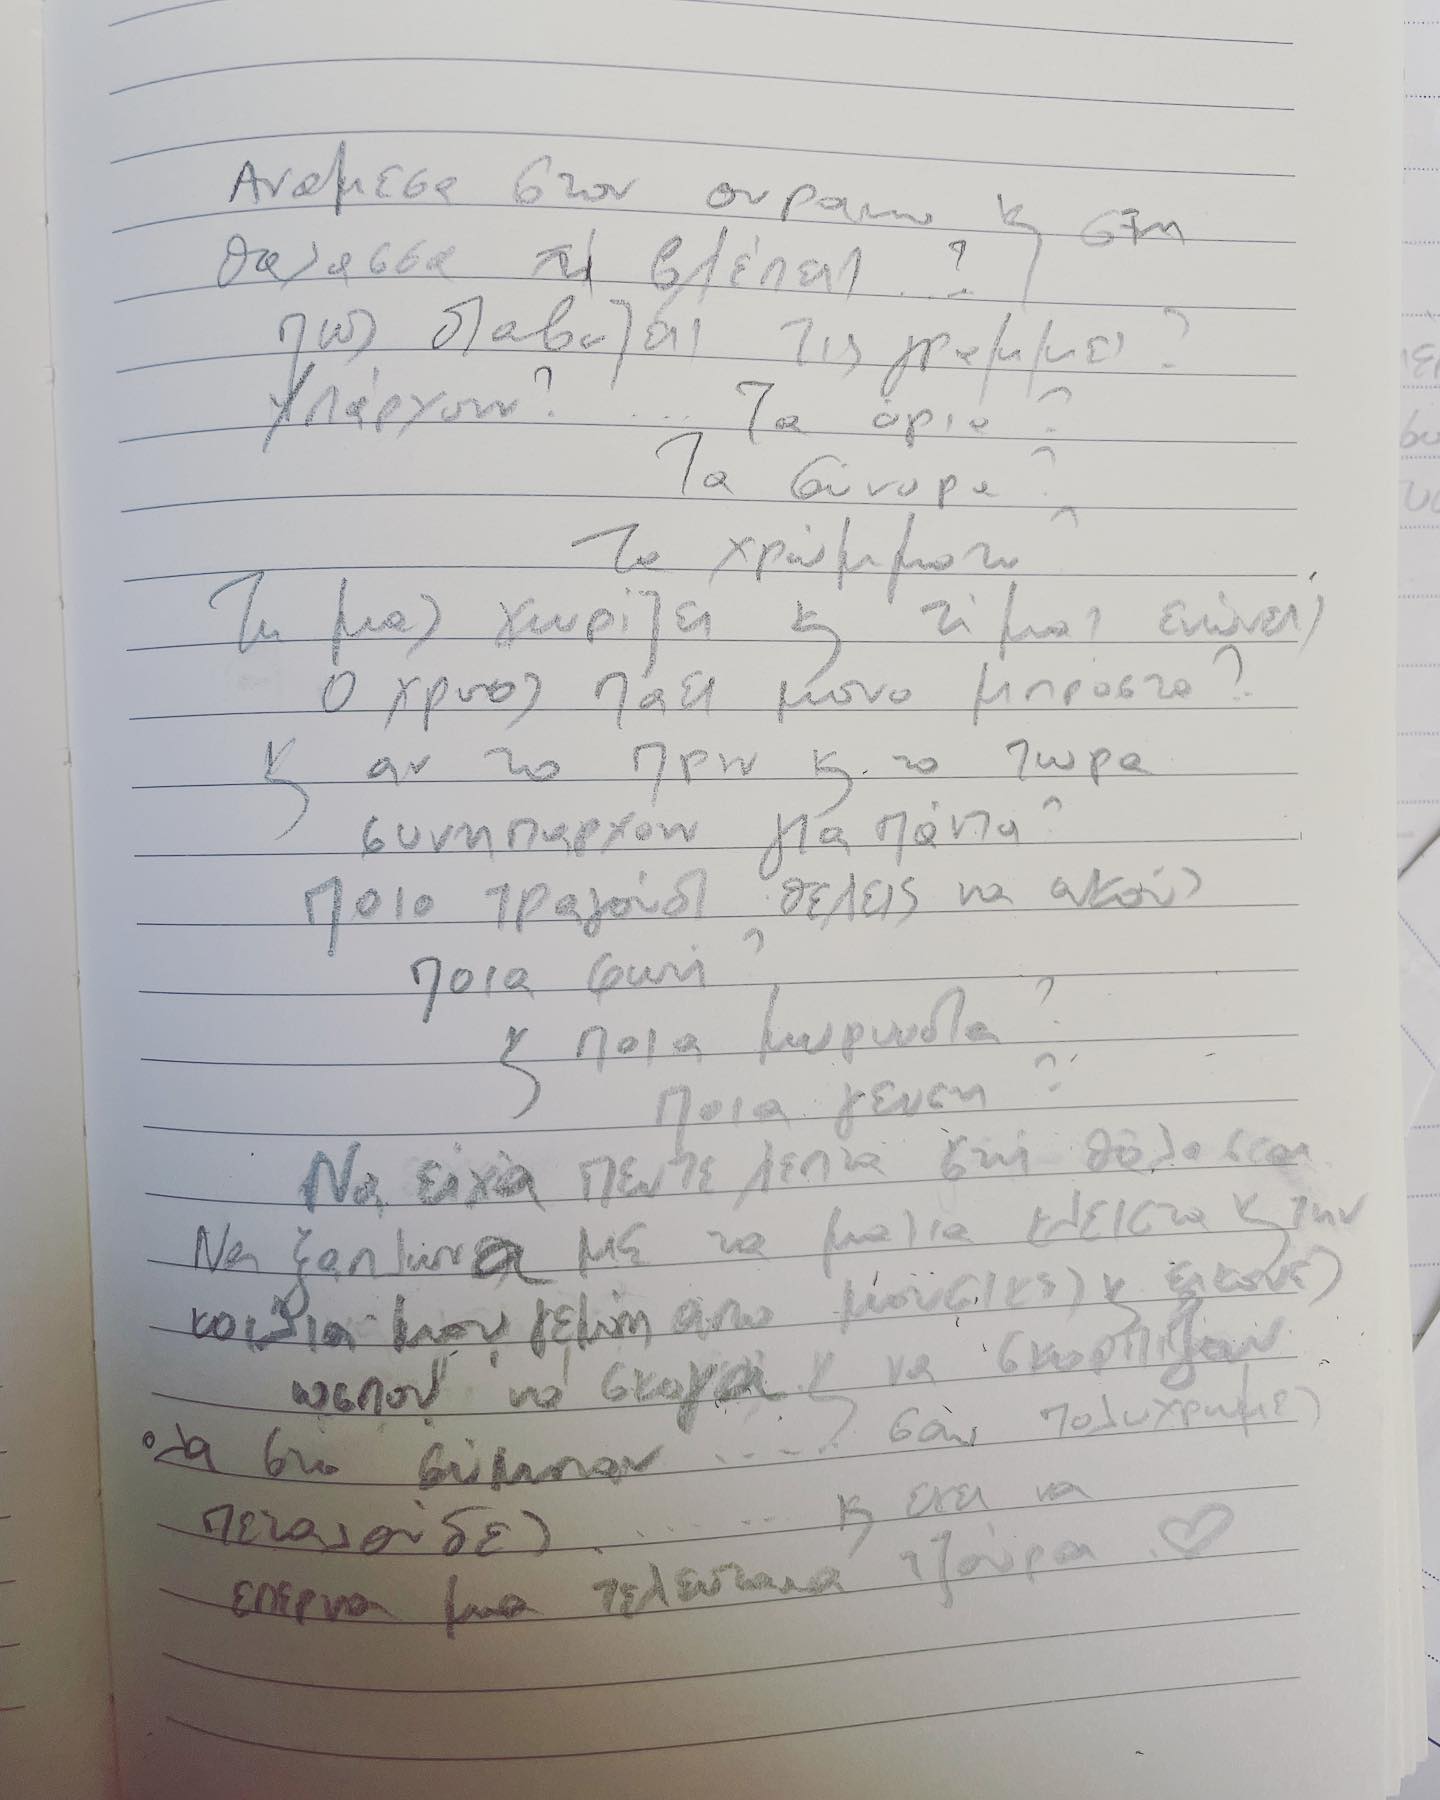 Αναμεσα στον ουρανο κ στη
θαλασσα τι βλέπεις ...?
πως διαβαζεις τις γραμμες?
Υπάρχουν? .... Τα όρια?
Τα σύνορα?
Τα χρώμματα?
Τι μας χωρίζει κ τί μας ενώνει;
Ο χρονος πάει μόνο μπρόστα?
κ αν το πριν κ το τωρα
συνηπαρχουν για πάντα?
Ποιο τραγούδι θελεις να ακούς
ποια φωνή?
κ ποια μυρωδια?
ποια γευση?
Να είχα πεντε λεπτα στη θάλασσα
Να ξαπλωνα με τα ματια κλειστα κ την
κοιλια μου γεμάτη απο μουσικες κ εικονές
ωσπου να σκαγα κ να σκορπιζαν
ολα στο σύμπαν ...... σαν πολυχρωμες
πεταλούδες ........ κ
επερνα μια τελευταια τζούρα .♡